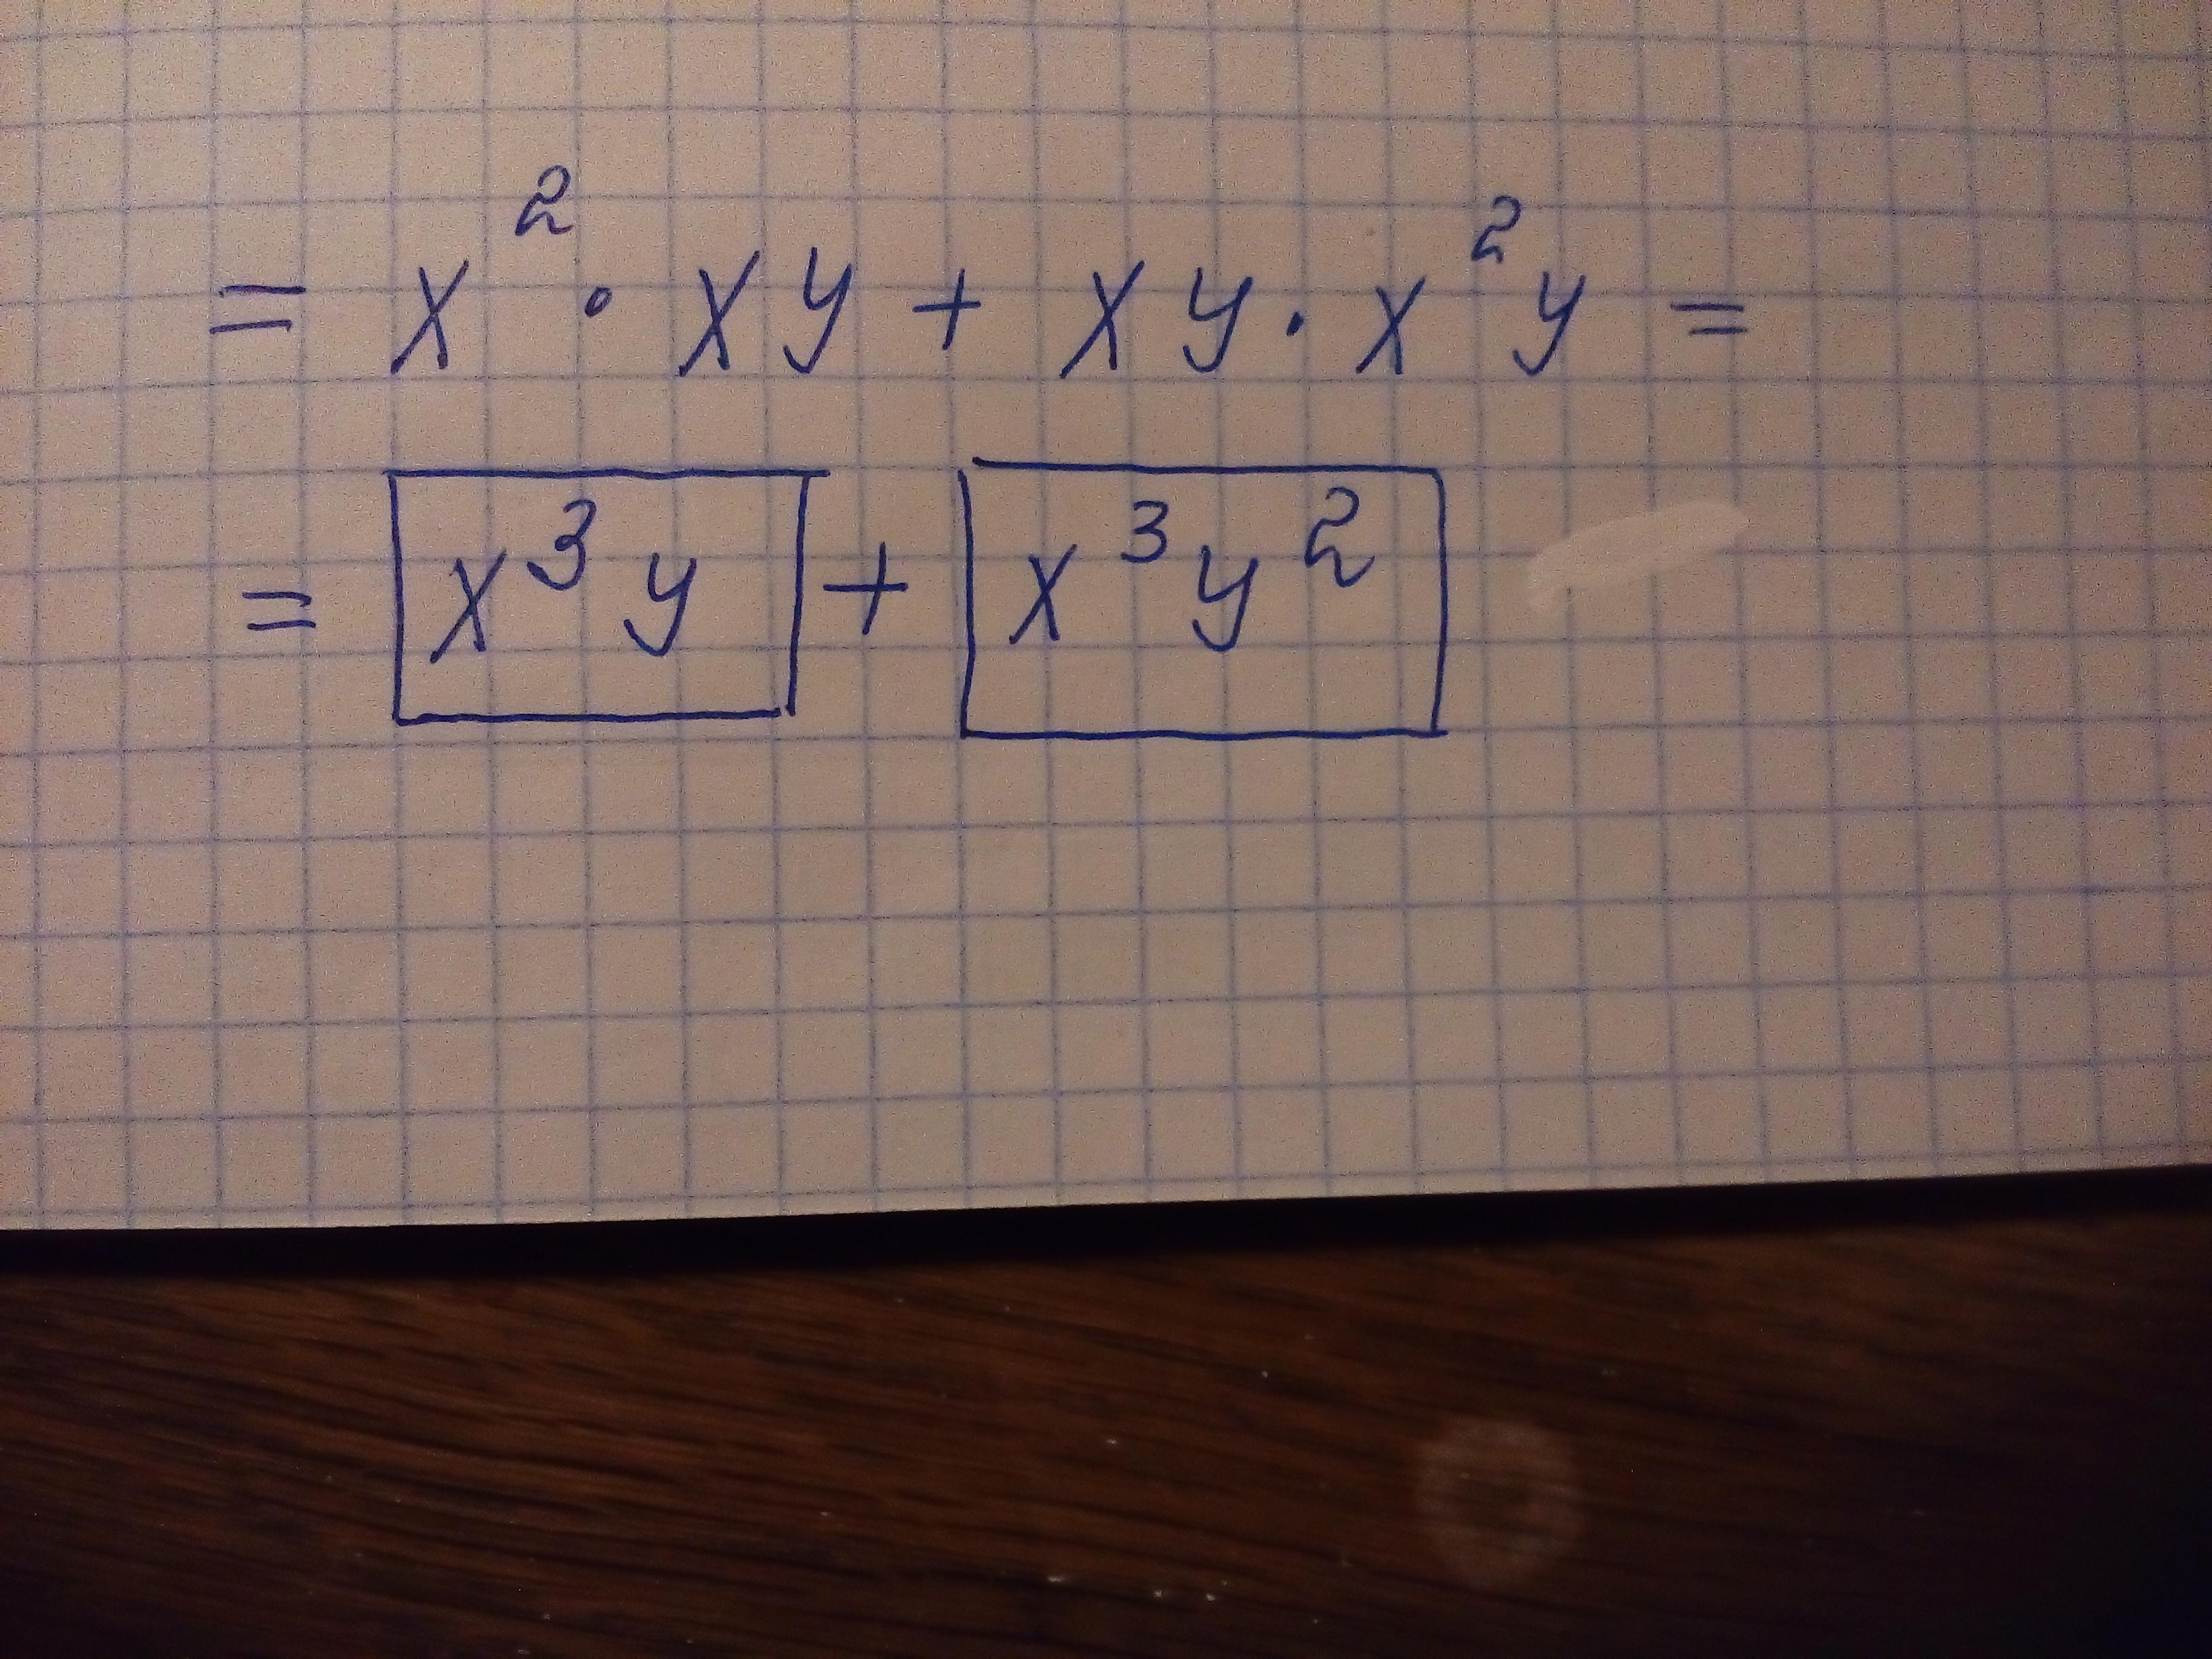 = x² · xy + xy · x²y =
= x³y + x³y²